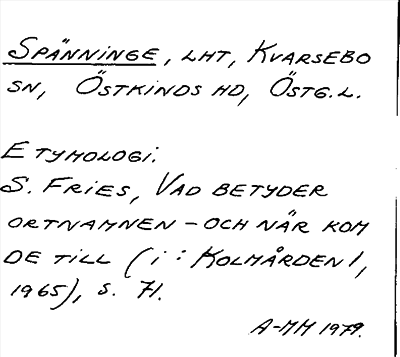 SPÄNNINGE, LHT, KVARSEBO
SN, ÖSTKINDS HD, ÖSTG.L.
ETYMOLOGI:
S. FRIES, VAD BETYDER
ORTNAMNEN - OCH NÄR KOM
DE TILL (i: KOLMÅRDEN 1,
1965), S. 71.
A-MM 1979.